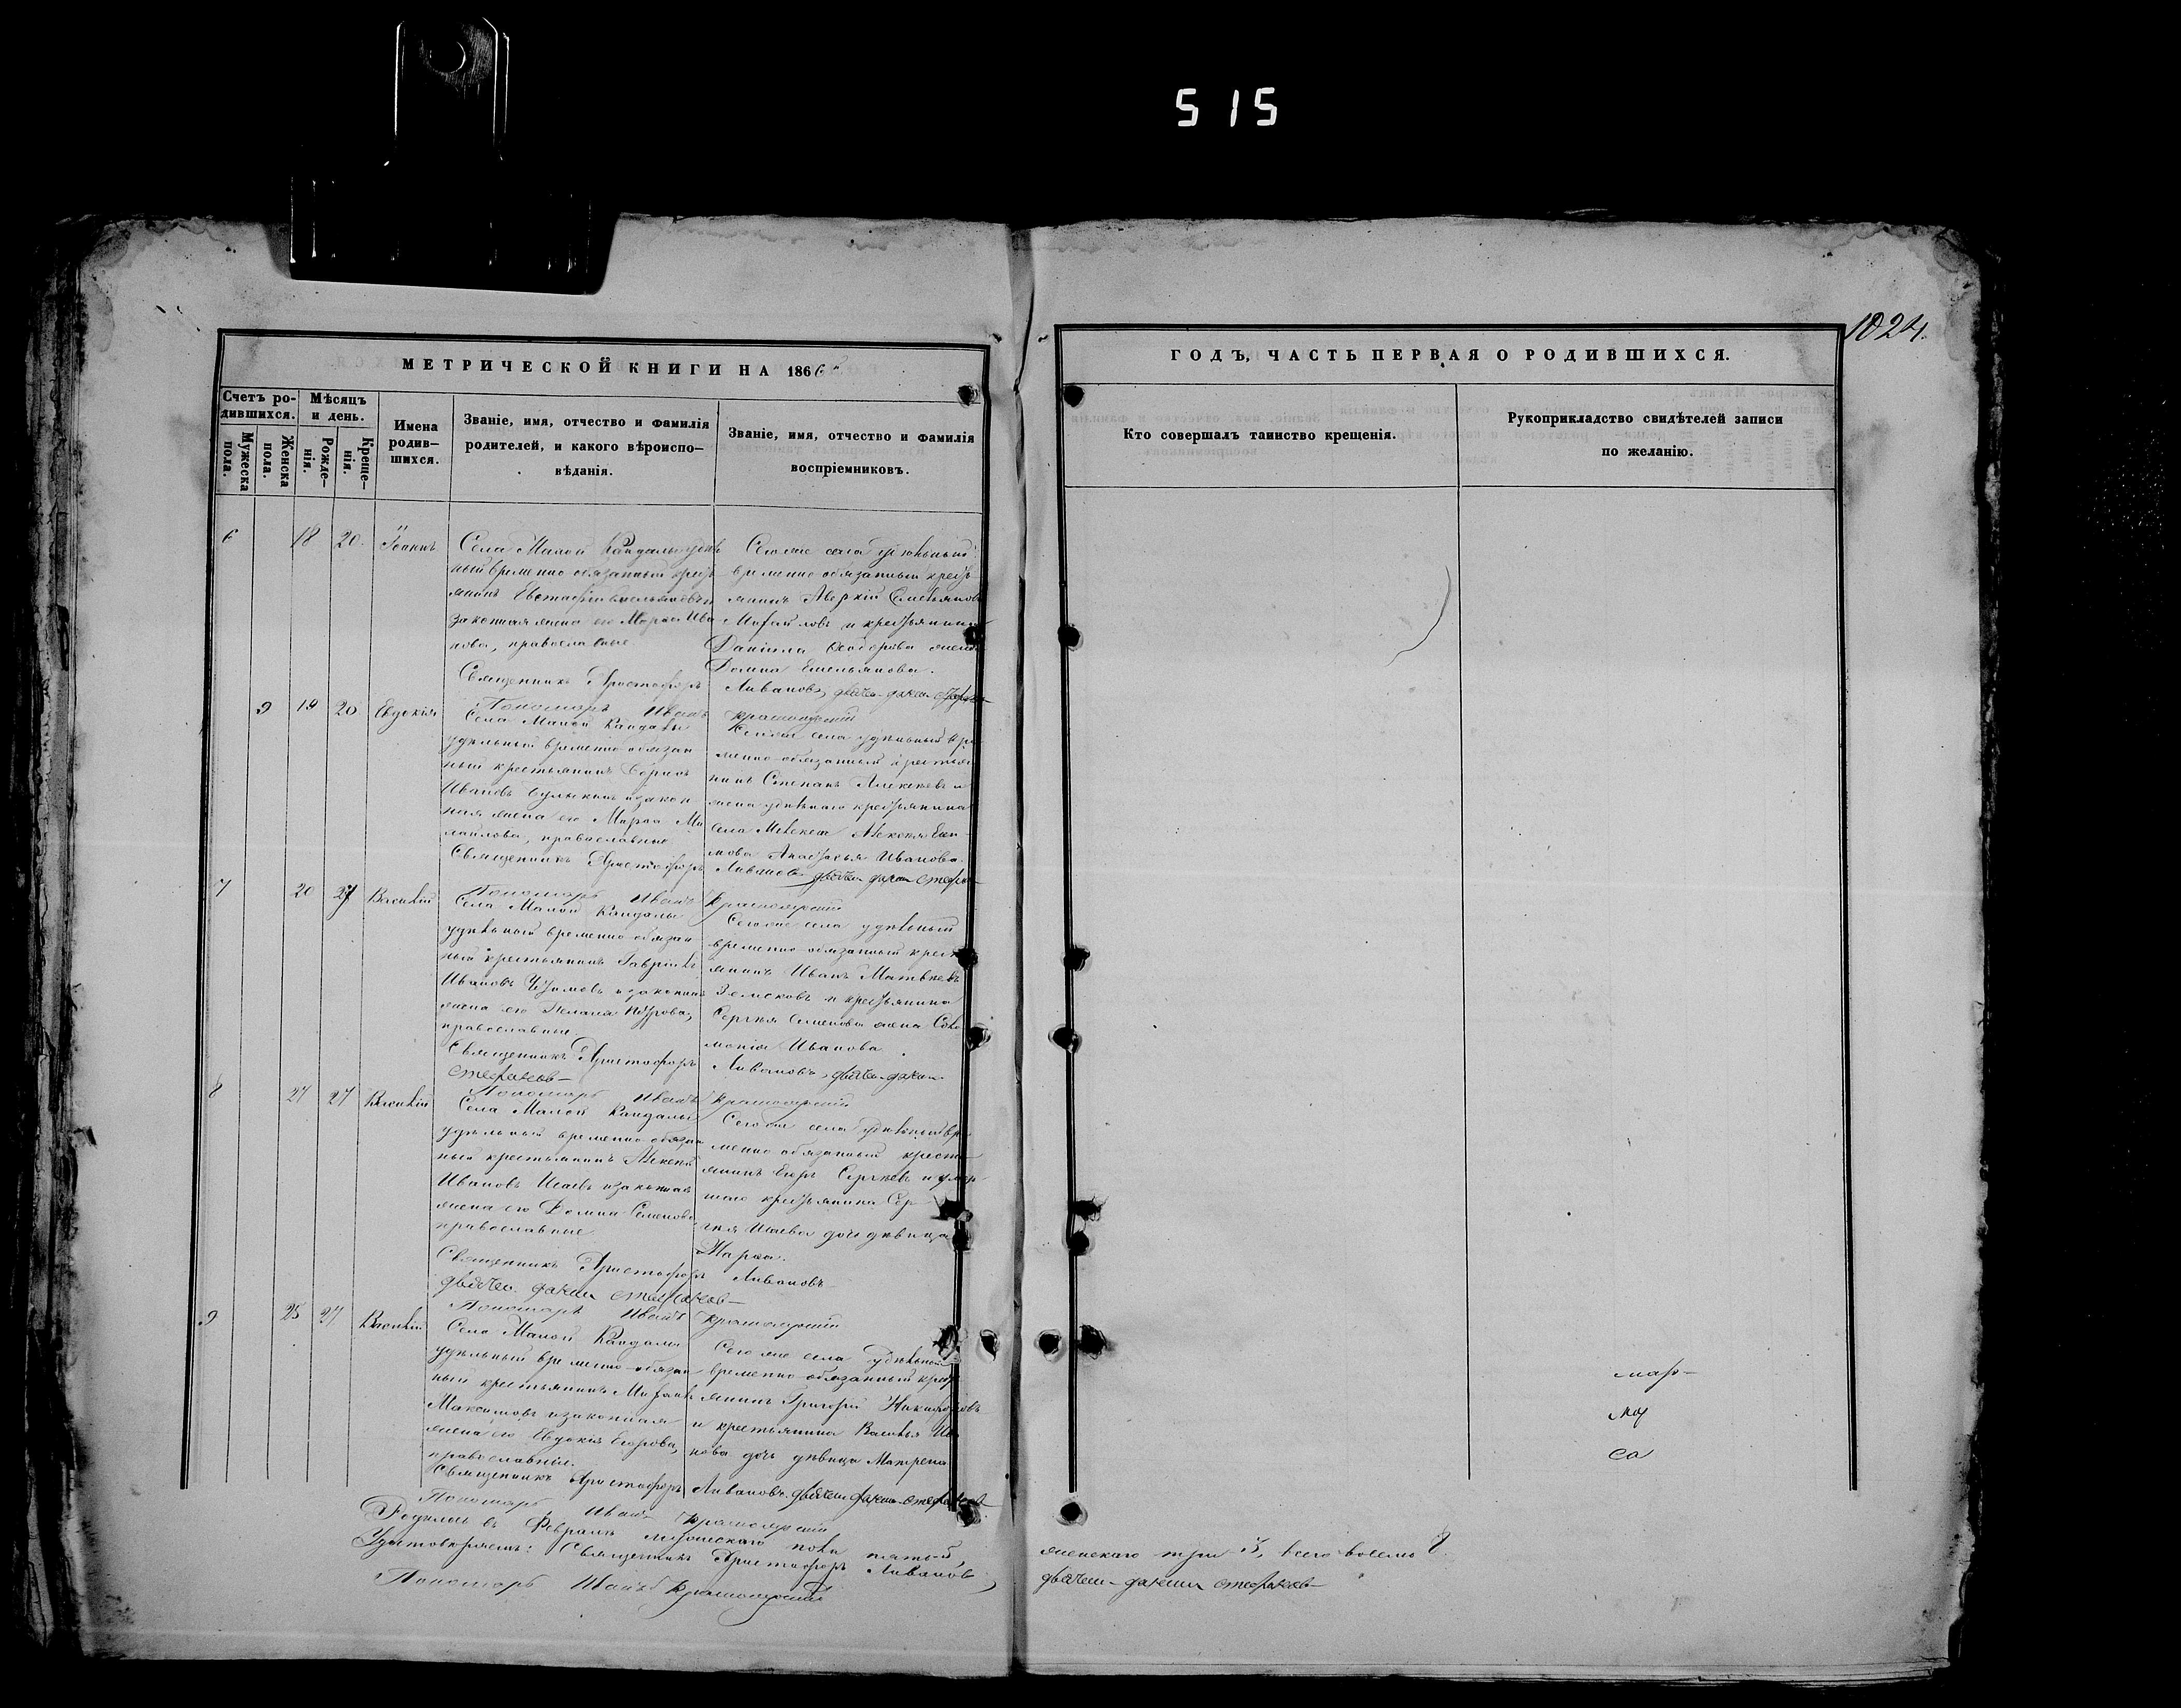 515
1024.
МЕТРИЧЕСКОЙ КНИГИ НА 1866
Счетъ ро-
дившихся.
Мужеска
пола.
Женска
пола.
Мѣсяцъ
и день.
Рожде-
нія.
Креще-
нія.
Имена
родив-
шихся.
Званіе, имя, отчество и фамилія
родителей, и какого вѣроиспо-
вѣданія.
Званіе, имя, отчество и фамилія
воспріемниковъ.
ГОДЪ, ЧАСТЬ ПЕРВАЯ О РОДИВШИХСЯ.
Кто совершалъ таинство крещенія.
Рукоприкладство свидѣтелей записи
по желанію.
6 18 20 Іоаннъ
Села Малой Кандалы удѣль
ный временно обязанный кресть
янинъ Евстафій Емельяновъ и
законная жена его Марѳа Ива
нова, православные
Сегоже села удѣльный
временно обязанный кресть
янинъ Аверкій Емельяновъ
Михайловъ и крестьянина
Даніила Ѳеодорова жена
Домна Емельянова.
Священникъ Христофоръ Ливановъ,
Пономарь Иванъ Красноярскій
9 19 20 Евдокія
Села Малой Кандалы
удѣльный временно-обязан
ный крестьянинъ Борисъ
Ивановъ и закон
ная жена его Марѳа Ми
хайлова, православные
Сегоже села удѣльный вре
менно-обязанный крестья
нинъ Степанъ Алексѣевъ и
жена удѣльнаго крестьянина
села Алексѣя
Анастасья Иванова.
Священникъ Христофоръ Ливановъ
Пономарь Иванъ Красноярскій
7 20 27 Василій
Села Малой Кандалы
удѣльный временно-обязан
ный крестьянинъ Гавріилъ
Ивановъ и законная
жена его Пелагія Петрова,
православные.
Сегоже села удѣльный
временно-обязанный кресть
янинъ Иванъ Матвѣевъ
Земсковъ и крестьянина
Сергѣя Семенова жена Соло
монія Иванова.
Священникъ Христофоръ Ливановъ,
Пономарь Иванъ Красноярскій
8 27 27 Василій
Села Малой Кандалы
удѣльный временно-обязан
ный крестьянинъ Алексѣй
Ивановъ Исаевъ и законная
жена его Домна Семенова,
православные
Сегоже села удѣльный вре
менно обязанный кресть
янинъ Егоръ Сергѣевъ и умер
шаго крестьянина Сер-
гѣя Исаева дочь дѣвица
Марѳа.
Священникъ Христофоръ Ливановъ
Пономарь Иванъ Красноярскій
9 25 27 Василій
Села Малой Кандалы
удѣльный временно-обязан
ный крестьянинъ Михаилъ
Максимовъ и законная
жена его Евдокія Егорова,
православные.
Сегоже села удѣльный
временно обязанный кресть
янинъ Григорій Никифоровъ
и крестьянина Василья Ива
нова дочь дѣвица Матрена
Священникъ Христофоръ Ливановъ.
Пономарь Иванъ Красноярскій
мар-
та
са
Родилось въ Февралѣ мужескаго пола пять 5,
женскаго три 3, всего восемь 8.
Удостовѣряемъ: Священникъ Христофоръ Ливановъ,
Пономарь Иванъ Красноярскій